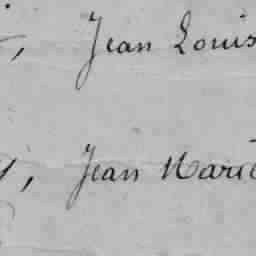 , Jean Louis
, Jean Marie